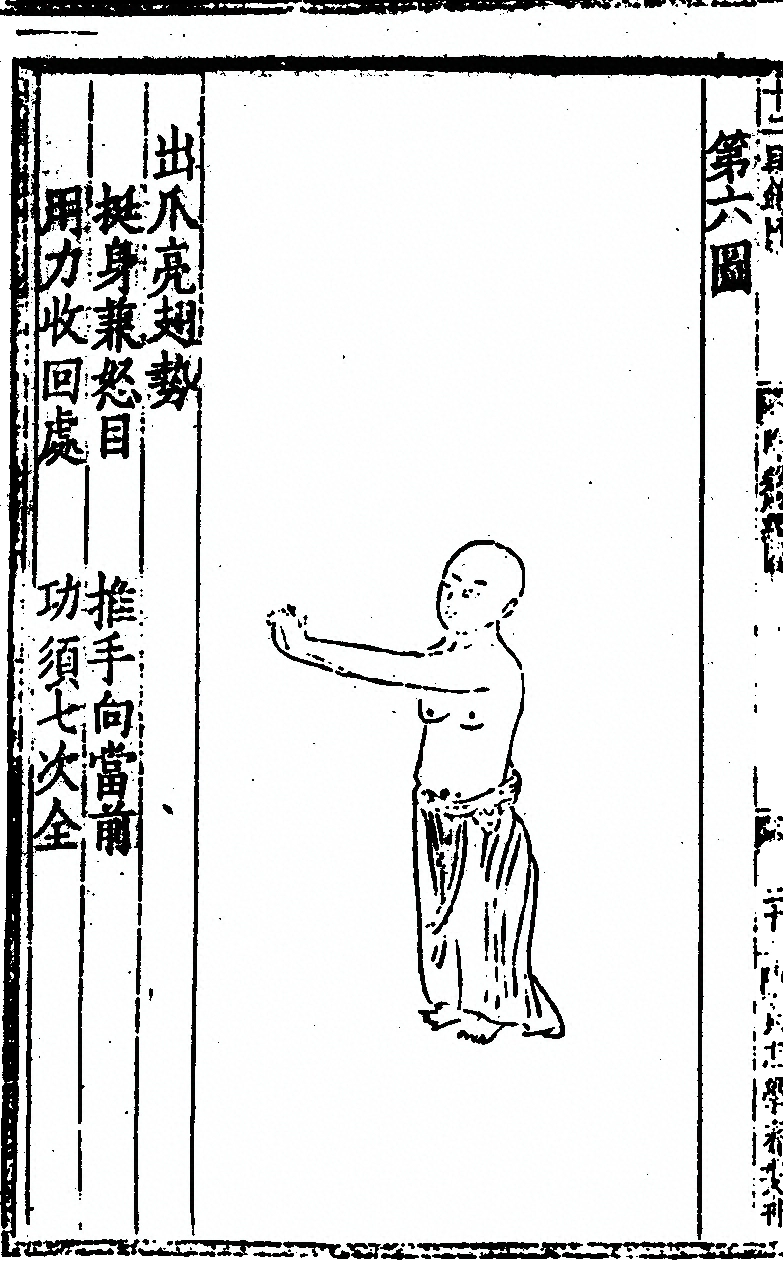 第六圖
出爪亮翅勢
挺身兼怒目　推手向當前
用力收回處　功須七次全